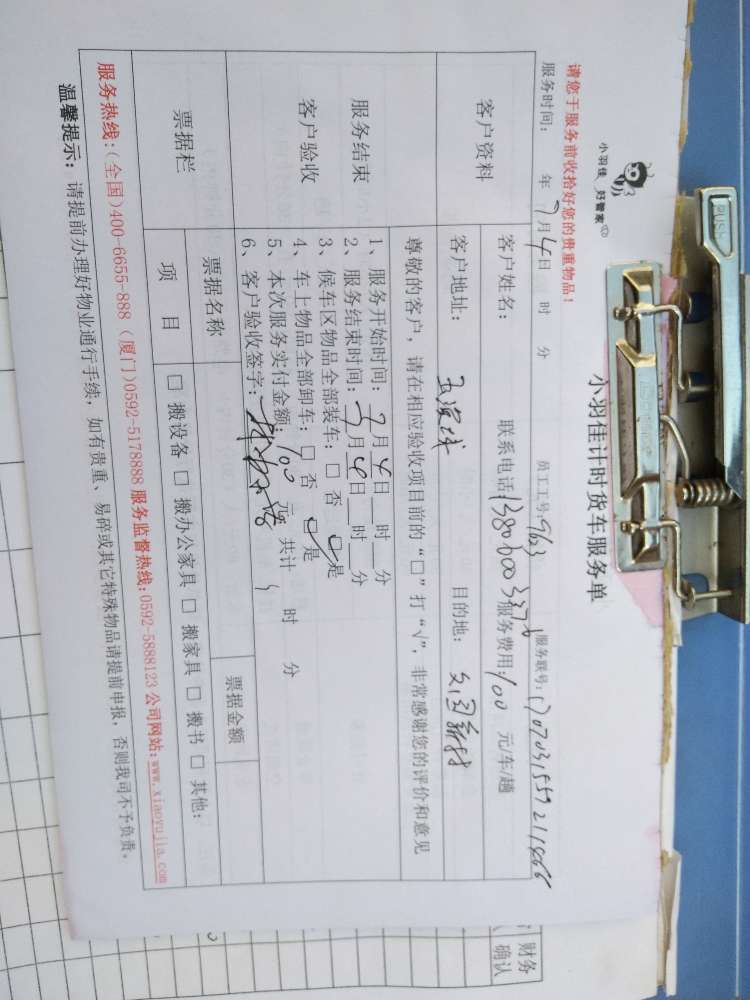 小羽佳 好管家
小羽佳计时货车服务单
请您于服务前收拾好您的贵重物品！
服务时间： 年 7月4日 时 分 员工工号：963 服务联号：
客户资料
客户姓名： 联系电话 服务费用：100 元/车/趟
客户地址： 目的地：
尊敬的客户，请在相应验收项目前的“□”打“√”，非常感谢您的评价和意见
服务结束
客户验收
1、服务开始时间：7月4日 时 分
2、服务结束时间：7月4日 时 分
3、候车区物品全部装车：□ 否 ☑ 是
4、车上物品全部卸车：□ 否 ☑ 是
5、本次服务实付金额：100 元 共计 时 分
6、客户验收签字：
票据栏
票据名称 票据金额
项 目 □ 搬设备 □ 搬办公家具 □ 搬家具 □ 搬书 □ 其他：
服务热线：(全国)400-6655-888 (厦门)0592-5178888 服务监督热线：0592-5888123 公司网站：www.xiaoyujia.com
温馨提示：请提前办理好物业通行手续，如有贵重、易碎或其它特殊物品请提前申报，否则我司不予负责。
PUSH
财务
确认